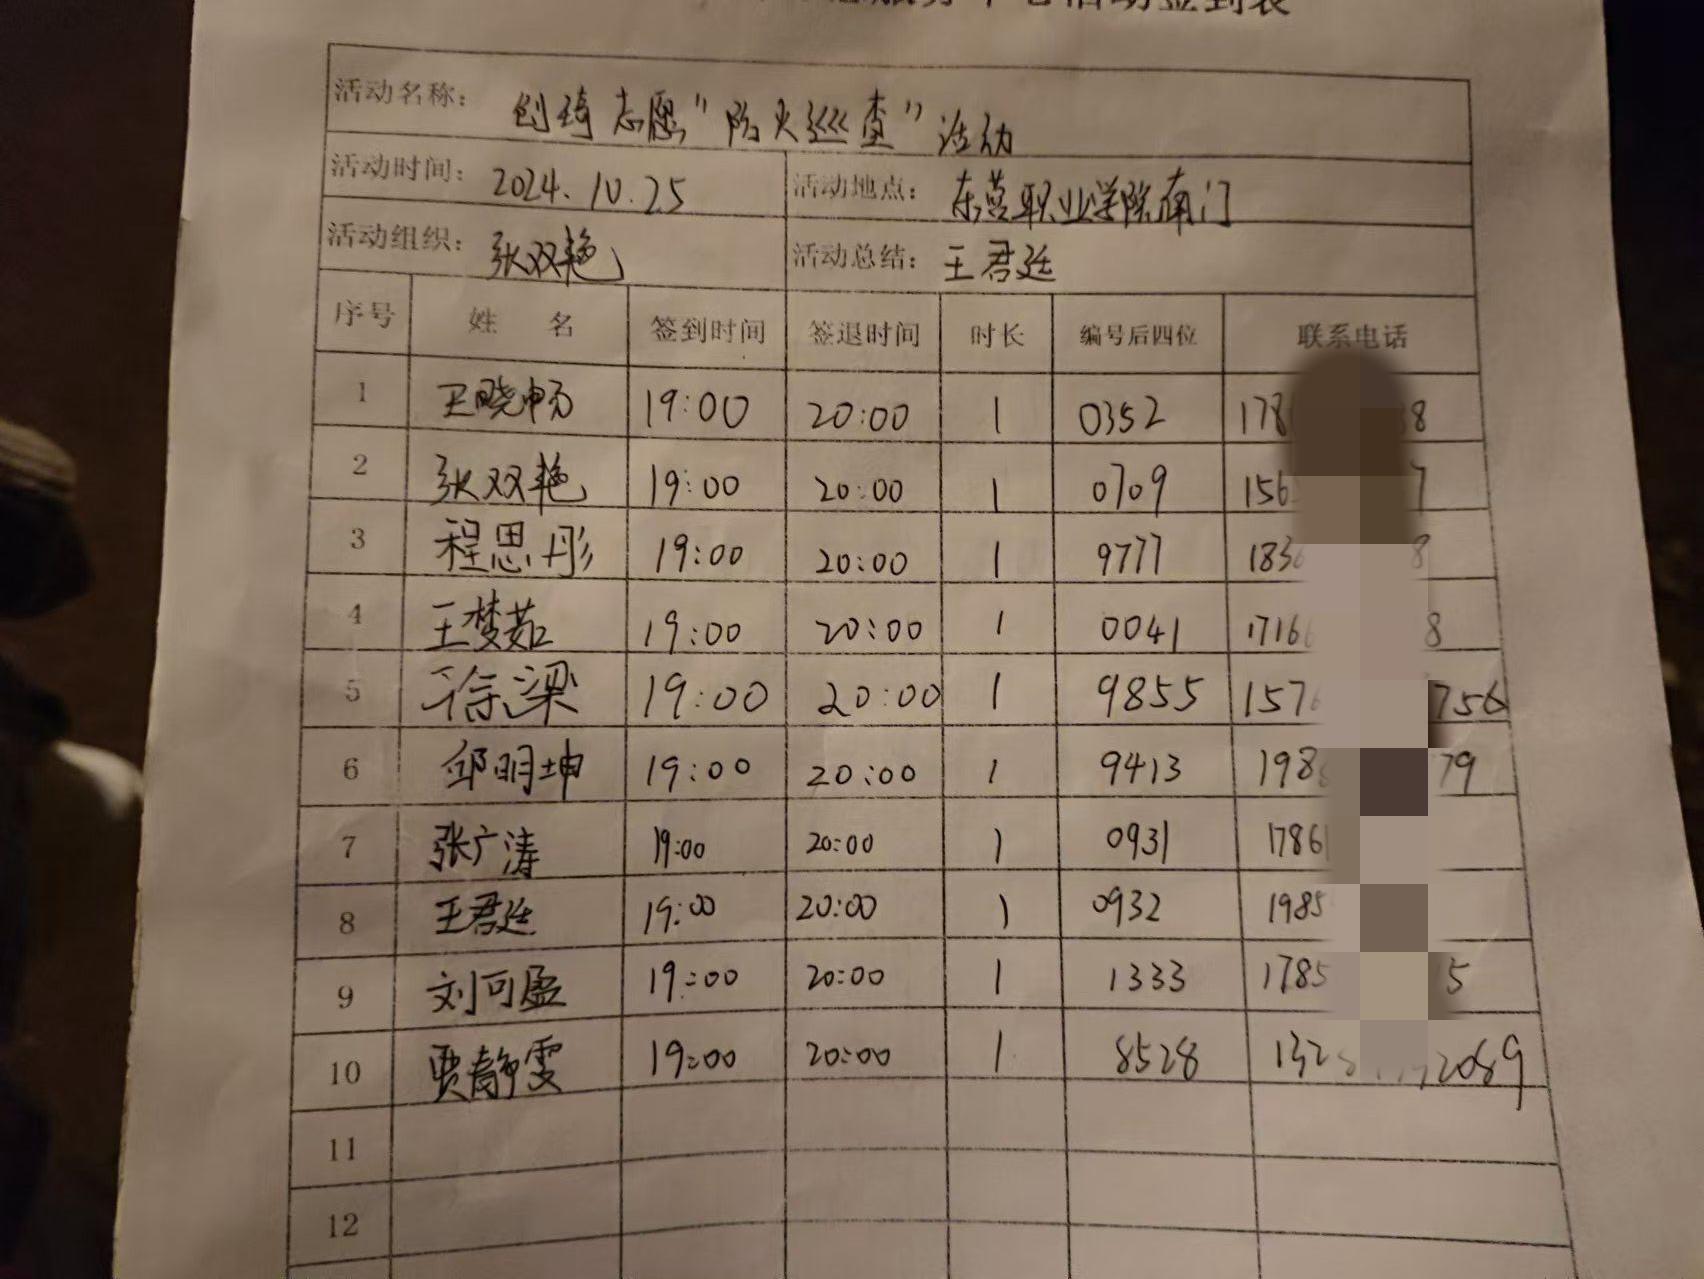 活动签到表
活动名称: 创琦志愿"防火巡查"活动
活动时间: 2024.10.25 活动地点: 东营职业学院南门
活动组织: 张双艳 活动总结: 王君廷
序号 姓名 签到时间 签退时间 时长 编号后四位 联系电话
1 王晓畅 19:00 20:00 1 0352 178 8
2 张双艳 19:00 20:00 1 0709 156 7
3 程思彤 19:00 20:00 1 9777 183 8
4 王梦茹 19:00 20:00 1 0041 1716 8
5 徐梁 19:00 20:00 1 9855 157 756
6 邱明坤 19:00 20:00 1 9413 198 79
7 张广涛 19:00 20:00 1 0931 1786
8 王君廷 19:00 20:00 1 0932 1985
9 刘可盈 19:00 20:00 1 1333 1785 5
10 贾静雯 19:00 20:00 1 8528 132 2089
11
12